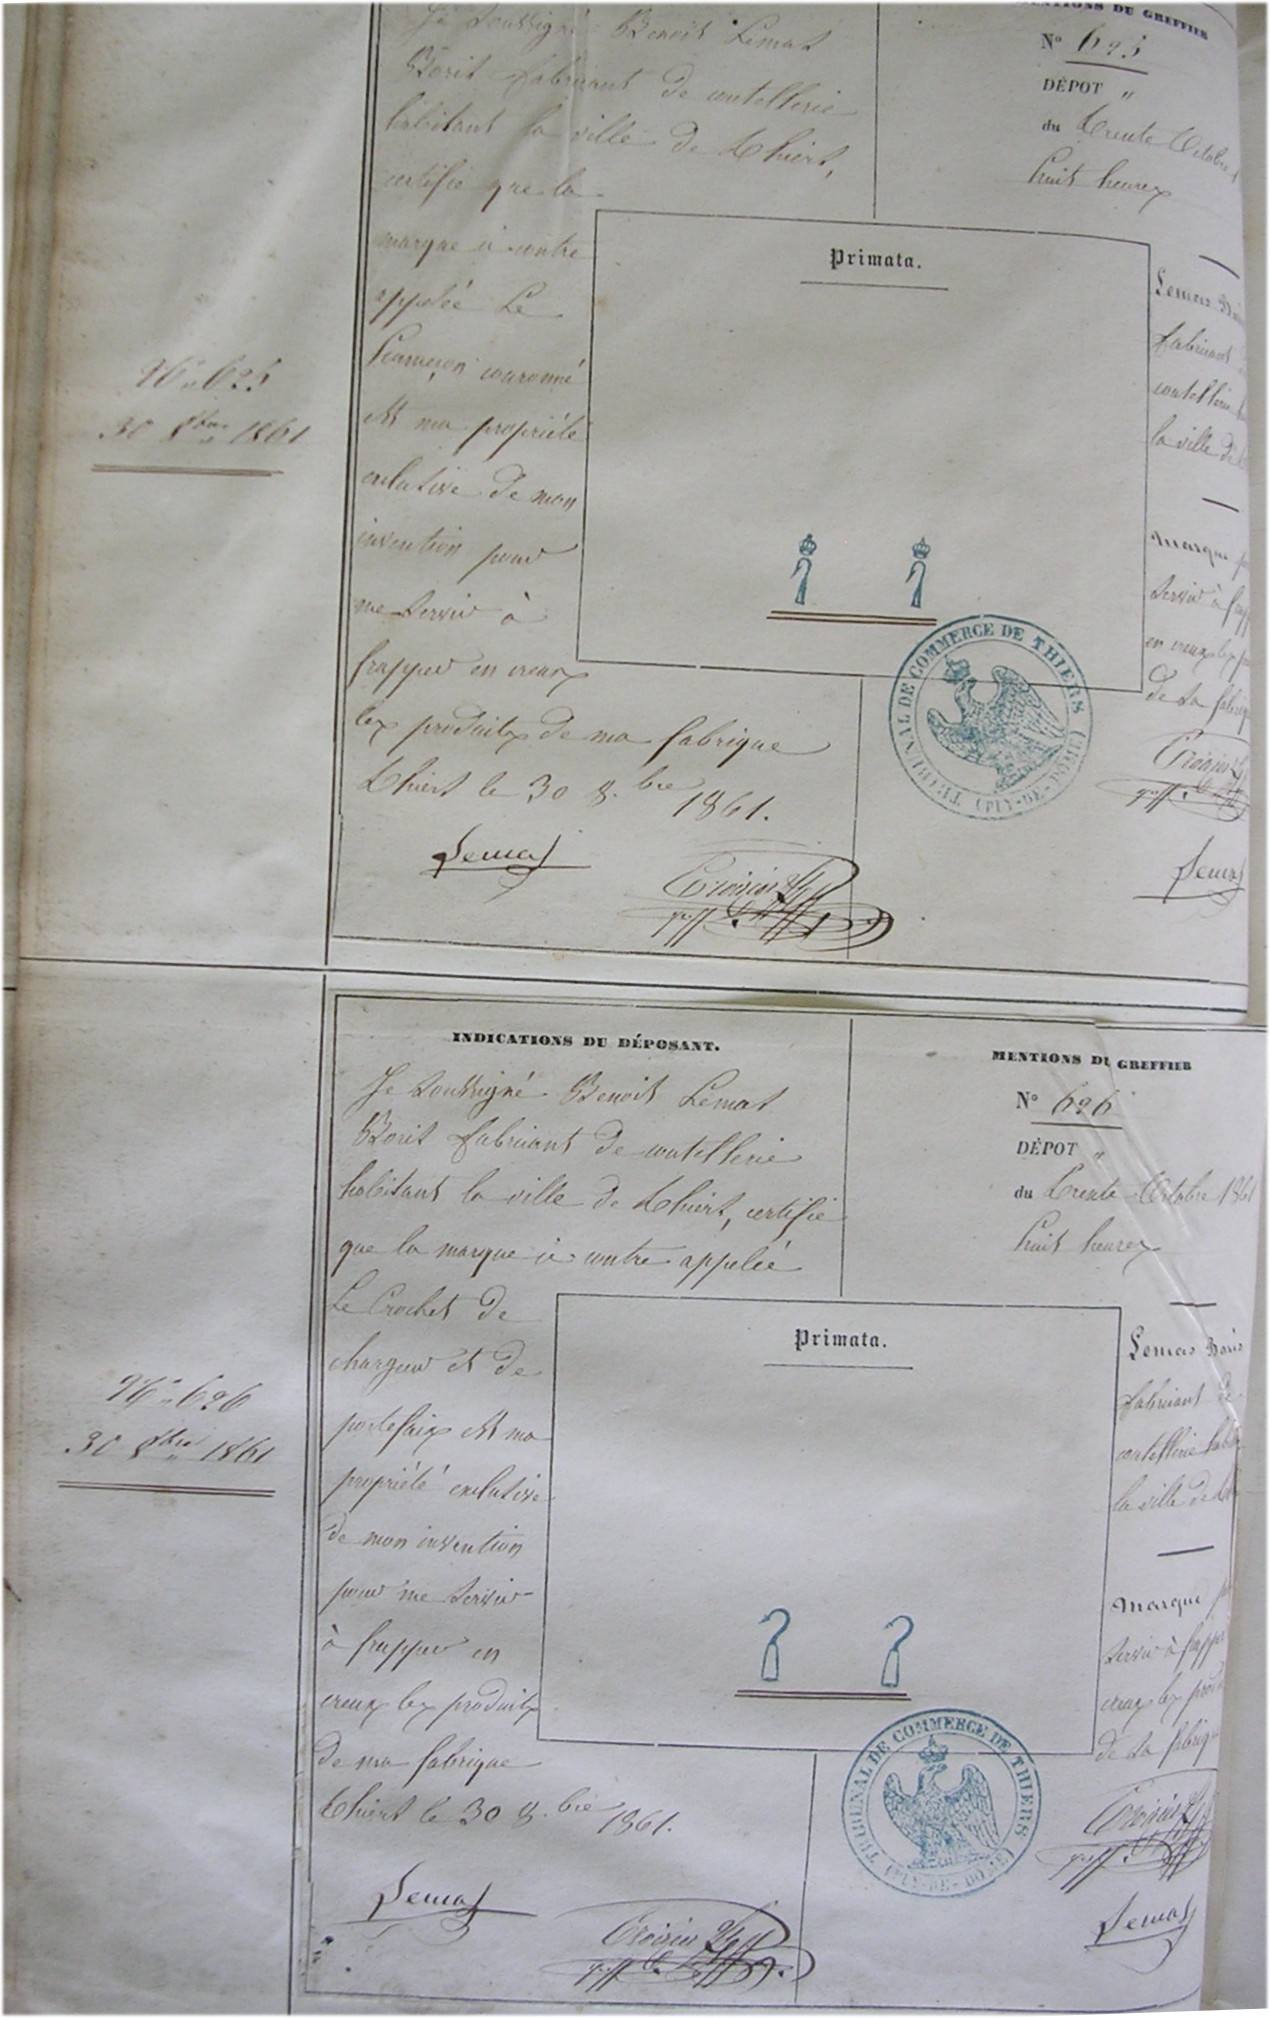 Je soussigné Benoit Lemas
Borit fabricant de coutellerie
habitant la ville de Thiers,
certifie que la
marque ci contre
appelée Le
hameçon couronné
est ma propriété
exclusive de mon
invention pour
me servir à
frapper en creux
les produits de ma fabrique
Thiers le 30 8.bre 1861.
Lemas
N° 625
30 8bre 1861
MENTIONS DU GREFFIER
N° 625
DÉPOT "
du Trente Octobre
huit heures
Primata.
Lemas
fabricant
coutellerie
la ville de
Marque
servir à
en creux les
de sa
Lemas
TRIBUNAL DE COMMERCE DE THIERS
(PUY-DE-DÔME)
INDICATIONS DU DÉPOSANT.
Je soussigné Benoit Lemas
Borit fabricant de coutellerie
habitant la ville de Thiers, certifie
que la marque ci contre appelée
Le Crochet de
chargeur et de
portefaix est ma
propriété exclusive
de mon invention
pour me servir
à frapper en
creux les produits
de ma fabrique
Thiers le 30 8.bre 1861.
Lemas
N° 626
30 8bre 1861
MENTIONS DU GREFFIER
N° 626
DÉPOT "
du Trente Octobre 1861
huit heures
Primata.
Lemas
fabricant de
coutellerie
la ville de
Marque
servir à
creux les
de sa
Lemas
TRIBUNAL DE COMMERCE DE THIERS
(PUY-DE-DÔME)